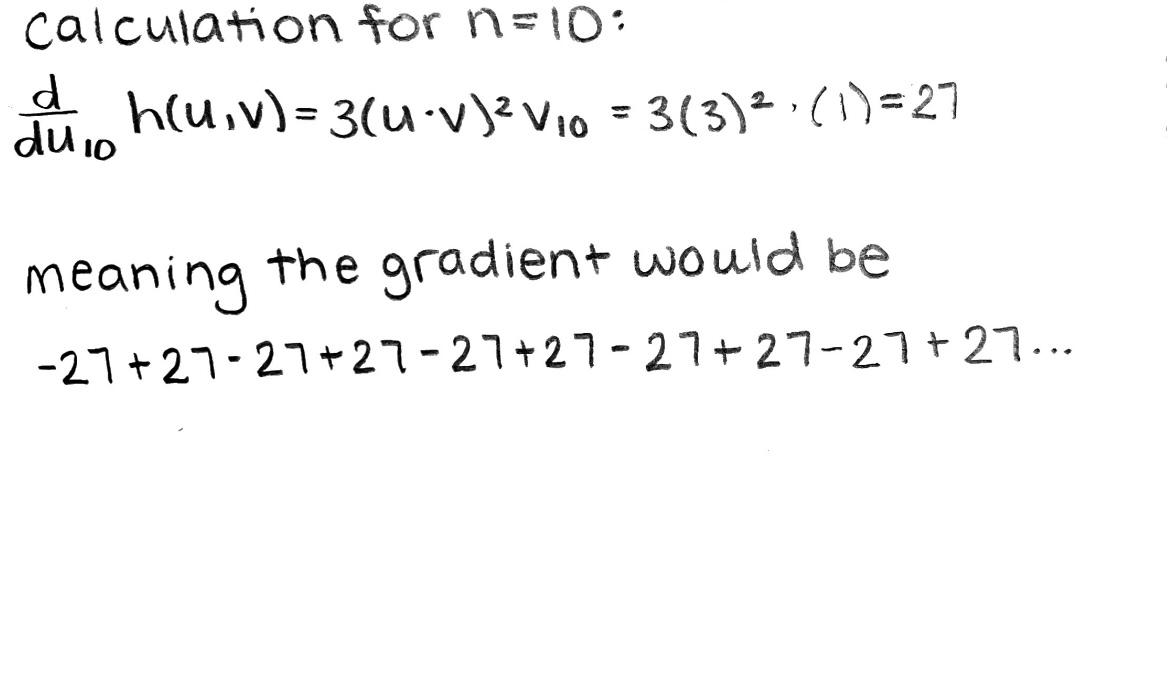 calculation for n=10:
d/du₁₀ h(u,v)=3(u·v)²v₁₀ = 3(3)²·(1)=27
meaning the gradient would be
-27+27-27+27-27+27-27+27-27+27...